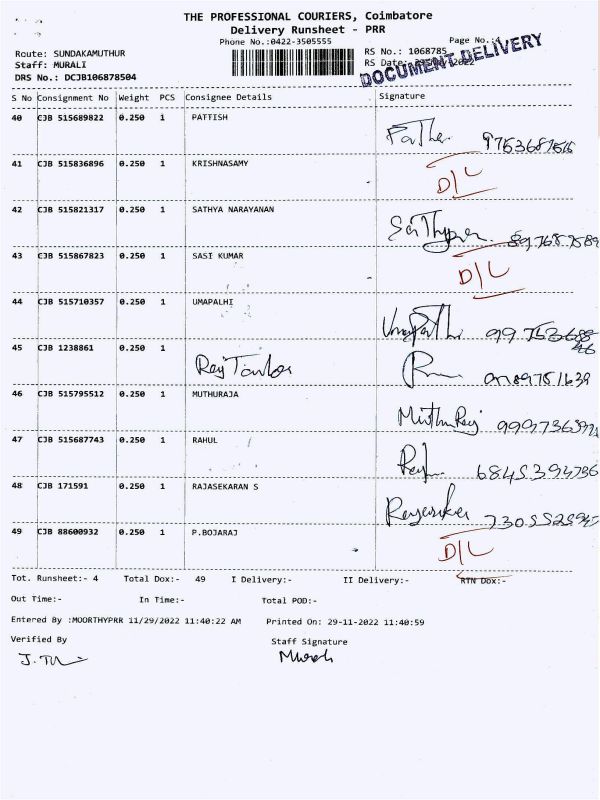 THE PROFESSIONAL COURIERS, Coimbatore
Delivery Runsheet - PRR
Phone No.:0422-3505555 Page No.:4
Route: SUNDAKAMUTHUR RS No.: 1068785
Staff: MURALI RS Date:
DRS No.: DCJB106878504
DOCUMENT DELIVERY
S No Consignment No Weight PCS Consignee Details Signature
40 CJB 515689822 0.250 1 PATTISH
41 CJB 515836896 0.250 1 KRISHNASAMY D/L
42 CJB 515821317 0.250 1 SATHYA NARAYANAN
43 CJB 515867823 0.250 1 SASI KUMAR D/L
44 CJB 515710357 0.250 1 UMAPALHI
45 CJB 1238861 0.250 1
46 CJB 515795512 0.250 1 MUTHURAJA
47 CJB 515687743 0.250 1 RAHUL
48 CJB 171591 0.250 1 RAJASEKARAN S
49 CJB 88600932 0.250 1 P.BOJARAJ D/L
Tot. Runsheet:- 4 Total Dox:- 49 I Delivery:- II Delivery:- RTN Dox:-
Out Time:- In Time:- Total POD:-
Entered By :MOORTHYPRR 11/29/2022 11:40:22 AM Printed On: 29-11-2022 11:40:59
Verified By Staff Signature